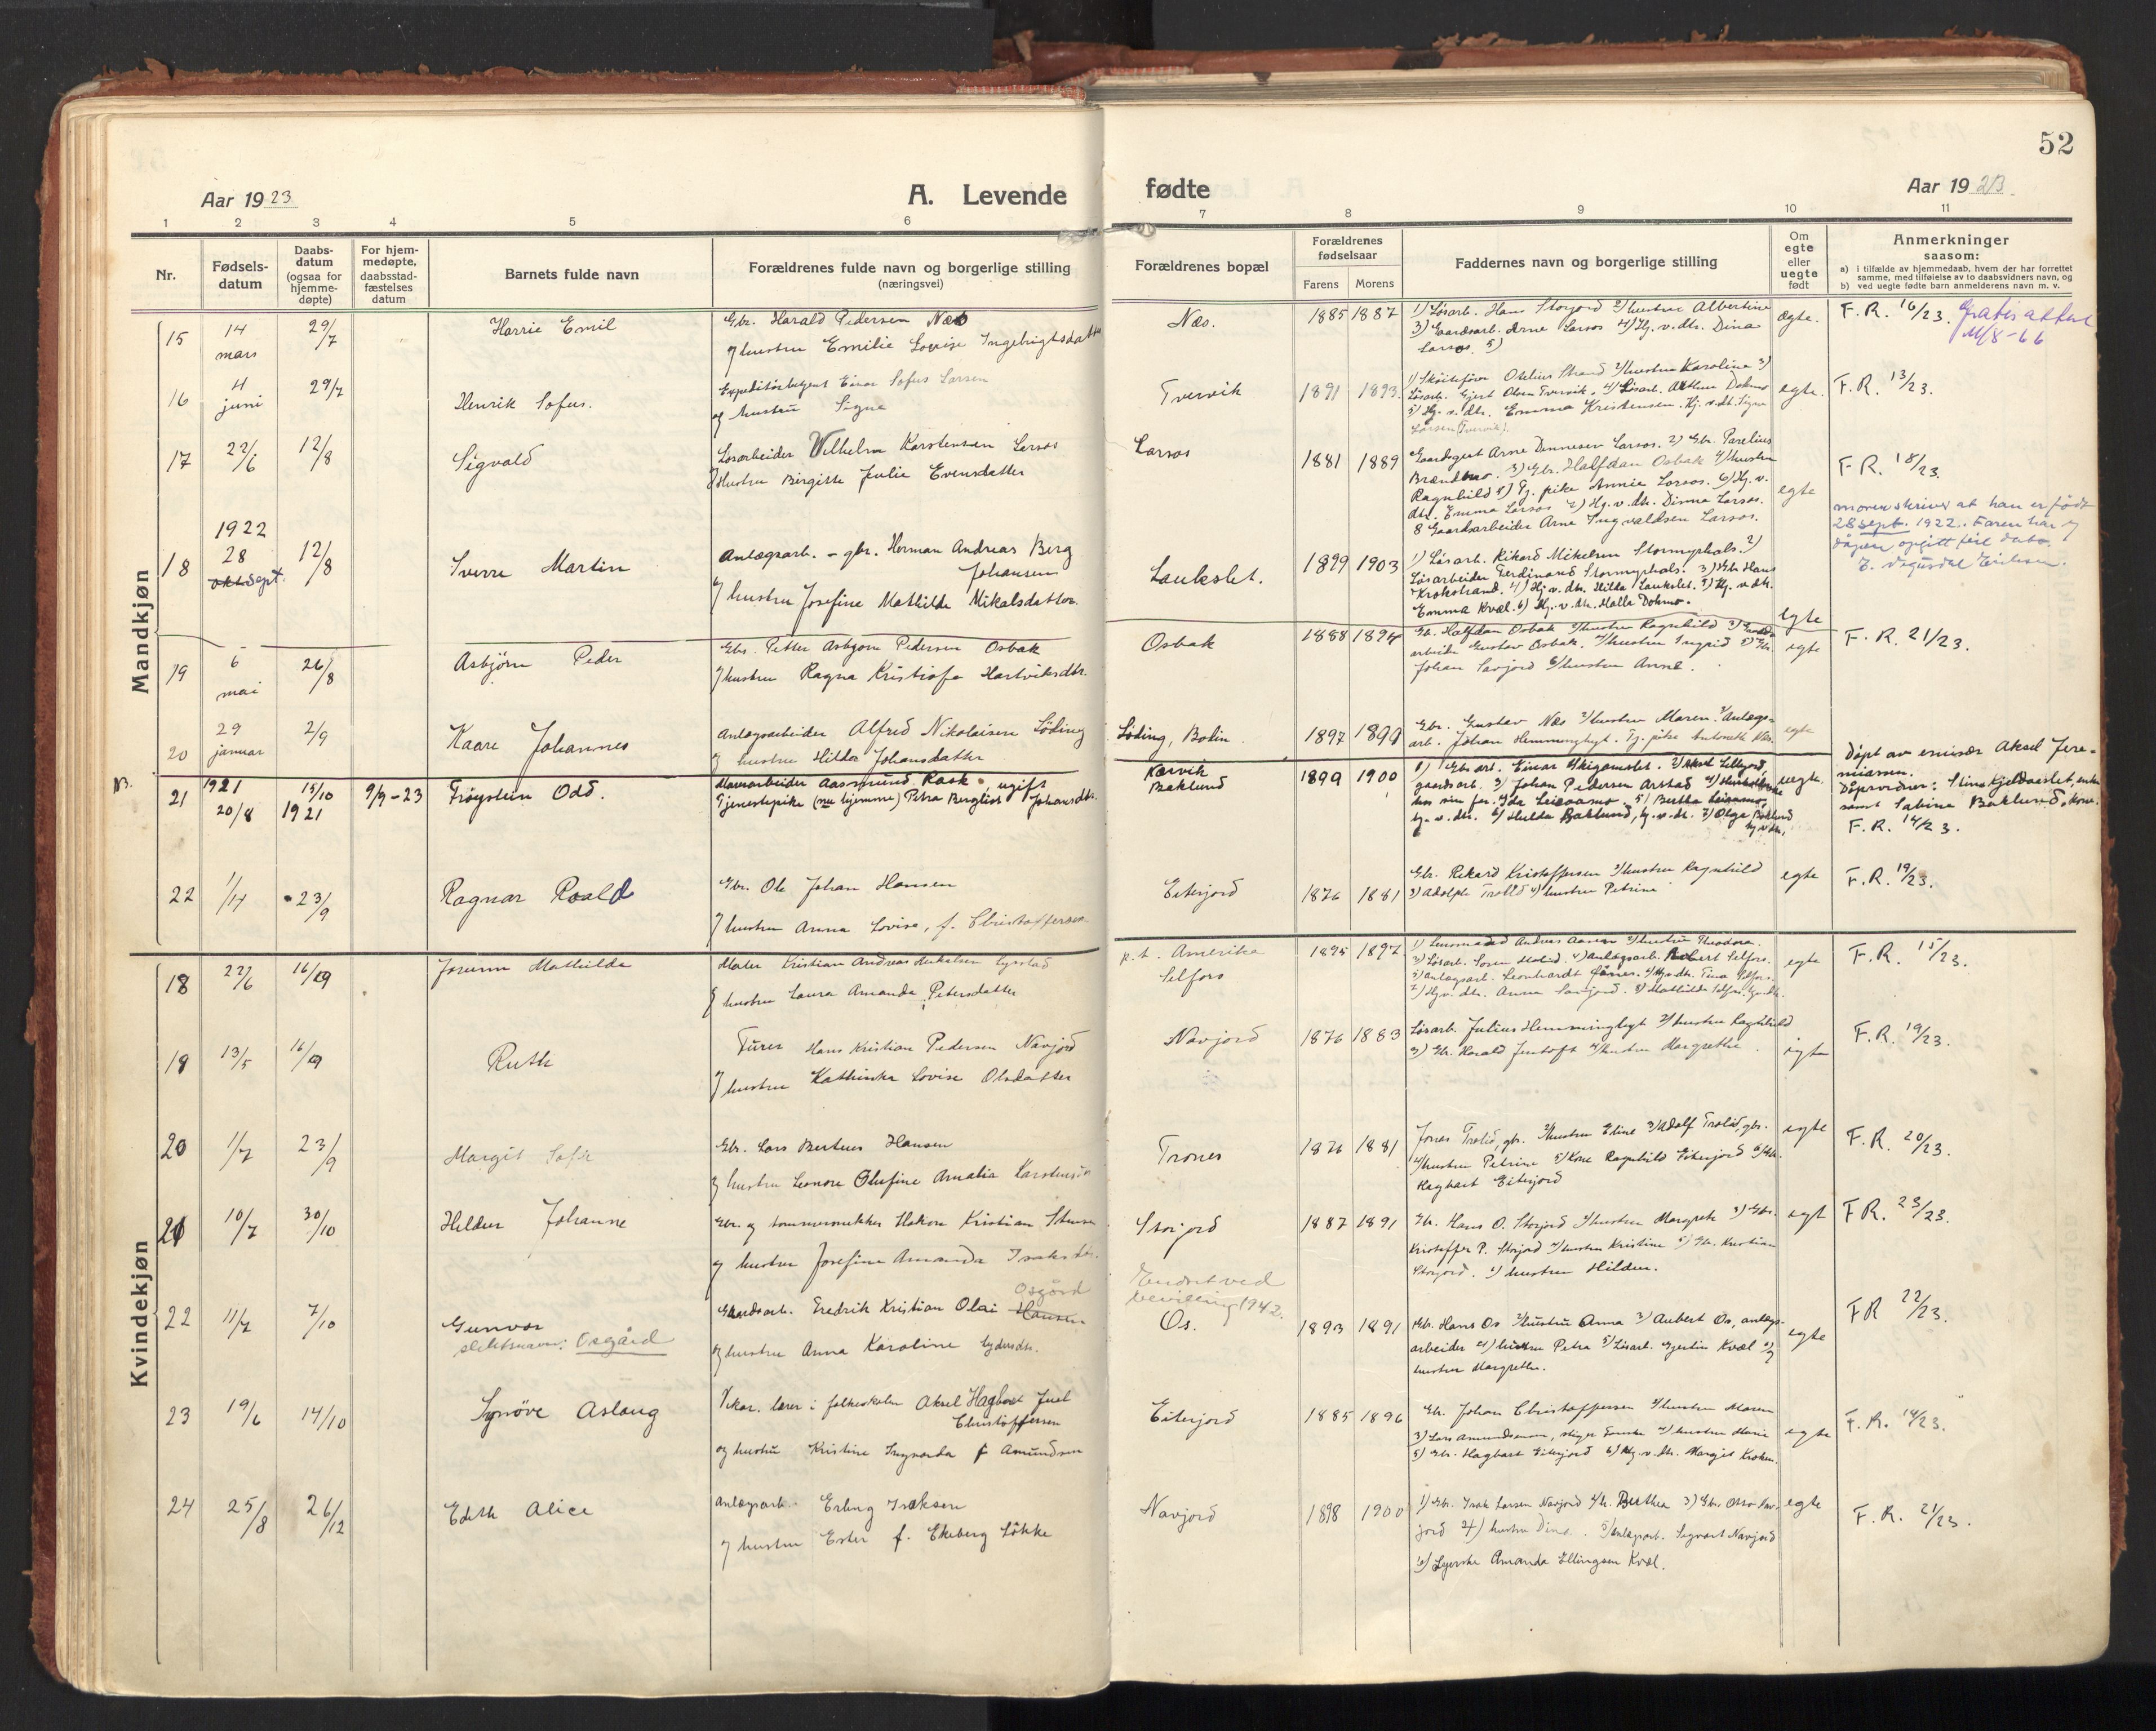 52
Aar 1923
A. Levende
fødte
Aar 1923
1 2 3 4 5 6 7 8 9 10 11
Nr.
Fødsels-
datum
Daabs-
datum
(ogsaa for
hjemme-
døpte)
For hjem-
medøpte,
daabsstad-
fæstelses
datum
Barnets fulde navn
Forældrenes fulde navn og borgerlige stilling
(næringsvei)
Forældrenes bopæl
Forældrenes
fødselsaar
Farens Morens
Faddernes navn og borgerlige stilling
Om
egte
eller
uegte
født
Anmerkninger
saasom:
a) i tilfælde av hjemmedaab, hvem der har forrettet
samme, med tilføielse av to daabsvidners navn, og
b) ved uegte fødte barn anmelderens navn m. v.
Mandkjøn
15
14
mars
29/7
Harrie Emil
Gbr. Harald Pedersen Næs
og hustru Emilie Lovise Ingebrigtsdatter
Næs.
1885 1887
1) Løsarb. Hans Storjord 2) hustru Albertine
3) Gaardsarb. Arne Larsos 4) Hj. v. dtr. Dina
Larsos. 5)
ægte.
F. R. 16/23. Gratis attest
11/8-66
16
4
juni
29/7
Henrik Sofus.
Einar Sofus Larsen
og hustru Signe
Tvervik
1891 1893
1) Skøitefører Otelius Strand 2) hustru Karoline 3)
Løsarb. Ejert Olsen Tvervik. 4) Løsarb. Arthur Dokmo
5) Hj. v. dtr. Emma Kristensen. Hj. v. dtr. Signe
Larsen (Tvervik).
egte.
F. R. 13/23.
17
22/6
12/8
Sigvald
Løsarbeider Wilhelm Karstensen Larsos
og Hustru Birgitte Julie Evensdatter
Larsos
1881 1889
Gaardsgut Arne Dinnesen Larsos. 2) Gbr. Parelius
Brændmo. 3) Gbr. Halfdan Osbak 4) hustru
Ragnhild 5) Tj. pike Annie Larsos. 6) Hj. v.
dtr. Emma Larsos 7) Hj. v. dtr. Dinna Larsos.
8 Gaardsarbeider Arne Ingvaldsen Larsos.
egte
F. R. 18/23.
18
1922
28
okt. sept.
12/8
Sverre Martin
Anlægsarb. - gbr. Herman Andreas Berg
Johansen
og hustru Josefine Mathilde Mikalsdatter.
Laukslet.
1899 1903
1) Løsarb. Rikard Mikelsen Stormyrhals. 2)
Løsarbeider Ferdinand Stormyrhals. 3) Gbr. Hans
Krokstrand. 4) Hj. v. dtr. Hilda Laukslet. 5) Hj. v. dtr.
Emma Kvæl. 6) Hj. v. dtr. Halla Dokmo.
egte
moren skriver at han er født
28 sept. 1922. Faren har v/
dåpen opgitt feil dato.
19
6
mai
26/8
Asbjørn Peder
Gbr. Petter Asbjørn Pedersen Osbak
og hustru Ragna Kristofa Hartviksdtr.
Osbak
1888 1894
Gb. Halfdan Osbak 2) hustru Ragnhild 3) Gaards
arbeider Gustav Osbak. 4) hustru Ingrid 5) Gbr.
Johan Savjord 6) hustru Anne.
egte
F. R. 21/23.
20
29
januar
2/9
Kaare Johannes
Anlægsarbeider Alfred Nikolaisen Løding
og hustru Hilda Johansdatter
Løding, Bodin
1897 1899
Gbr. Gustav Næs 2) hustru Maren. 3) Anlægs-
arb. Johan Hemminghyt. Tj. pike Antonette Næs.
egte
21
1921
20/8
15/10
1921
9/9-23
Frøystein Odd.
Murarbeider Aasmund Rask. ugift
Tjenestepike (nu hjemme) Petra Bergliot Johansdtr.
Kærvik
Baklund
1899 1900
3) Johan Pedersen Arstad
hos sin far.
hj. v. dtr. 6) Hulda Baklund, hj. v. dtr. 7) Olga Baklund
hj. v. dtr.
uegte.
Døpt av emissær Aksel Jere-
miassen.
Dåpsvidner: Stina Kjeldvaslet, enke
samt Sabina Baklund, kone.
F. R. 14/23.
22
1/4
23/9
Ragnar Roald
Gbr. Ole Johan Hansen
og hustru Anna Lovise, f. Christoffersen
Eiterjord
1876 1881
Gbr. Rikard Kristoffersen 2) hustru Ragnhild
3) Adolph Trolid 4) hustru Petrine
egte
F. R. 19/23.
Kvindekjøn
18
22/6
16/9
Jorunn Mathilde
Maler Kristian Andreas Mikalsen
og hustru Laura Amanda Petersdatter
p. t. Amerika
Selfors
1895 1897
egte
F. R. 15/23.
19
13/5
16/9
Ruth
Furer Hans Kristian Pedersen Navjord
og hustru Kathinka Lovise Olsdatter
Navjord
1876 1883
Løsarb. Julius Hemminghyt 2) hustru Ragnhild
3) Gbr. Harald Jentoft 4) hustru Margrethe.
egte
F. R. 19/23.
20
1/7
23/9
Margit Sofie
Gbr. Lars Bertnes Hansen
og hustru Leonore Olufine Amalia Karstensd.
Trones
1876 1881
Jonas Trolid, gbr. 2) hustru Eline 3) Adolf Trolid, gbr.
4) hustru Petrine 5) Kone Ragnhild Eiterjord 6) Gbr.
Hagbart Eiterjord
egte
F. R. 20/23.
21
10/7
30/10
Hildur Johanne
Gbr. og tømmermekker Hakon Kristian Stensen
og hustru Josefine Amanda Isaksdtr.
Storjord
1887 1891
Gb. Hans O. Storjord 2) hustru Margrete 3) Gbr.
Kristoffer P. Storjord 4) hustru Kristine 5) Gbr. Kristian
Storjord. 6) hustru Hildur.
egt
F. R. 23/23.
22
11/7
7/10
Gunvor
slektsnavn: Osgård
Osgård
Gaardsarb. Fredrik Kristian Olai Hansen
og hustru Anna Karoline Lydersdtr.
Endret ved
bevilling 1942.
Os.
1893 1891
Gbr. Hans Os 2) hustru Anna 3) Aubert Os, anlægs-
arbeider 4) hustru Petra 5) Løsarb. Gjertin Kvæl 6) og
hustru Margrethe.
egte
FR 22/23.
23
19/6
14/10
Synøve Aslaug
Vikar. lærer i folkeskolen Aksel Hagbart Juel
Christoffersen
og hustru Kristine Ingvarda f. Amundsen
Eiterjord
1885 1896
Gb. Johan Christoffersen 2) hustru Maren
3) Lars Amundsen, 4) hustru Marie
5) Gbr. Hagbart Eiterjord 6) Hj. v. dtr. Margit Kroken.
egte
F. R. 14/23.
24
25/8
26/12
Edith Alice
Anlægsarb. Erling Isaksen
og hustru Ester f. Ekeberg Løkke
Navjord
1898 1900
1) Gbr. Isak Larsen Navjord 2) h. Berthea 3) Gbr. Otto Nav-
jord 4) hustru Dina. 5) Anlægsarb. Sigvart Navjord
6) Syerske Amanda Ellingsen Kvæl.
egte
F. R. 21/23.